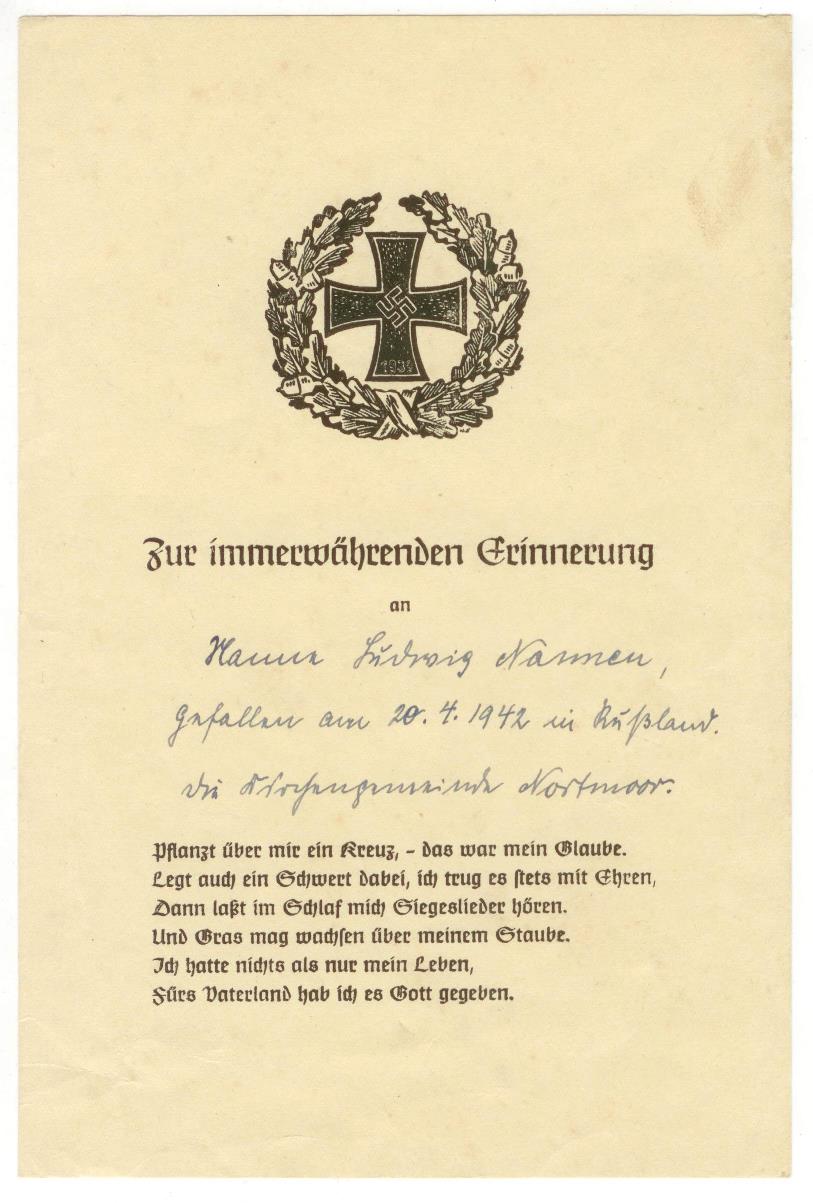 1939
Zur immerwährenden Erinnerung
an
Hanne Ludwig Nannen,
gefallen am 20. 4. 1942 in Rußland.
Die Kirchengemeinde Nortmoor.
Pflanzt über mir ein Kreuz, – das war mein Glaube.
Legt auch ein Schwert dabei, ich trug es stets mit Ehren,
Dann laßt im Schlaf mich Siegeslieder hören.
Und Gras mag wachsen über meinem Staube.
Ich hatte nichts als nur mein Leben,
Fürs Vaterland hab ich es Gott gegeben.